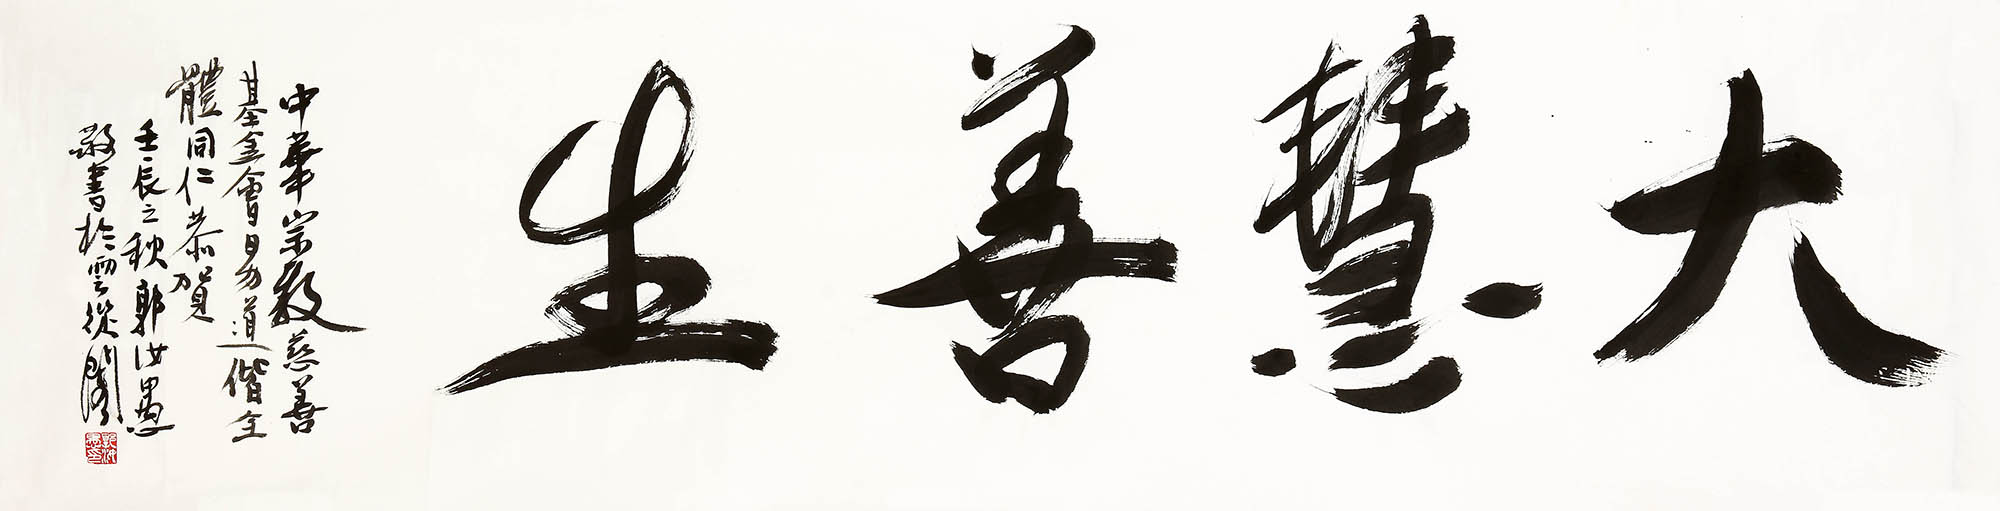 大慧善生
中華宗教慈善
基金會易道偕全
體同仁恭賀
壬辰之秋郭汝愚
敬書於雲從閣